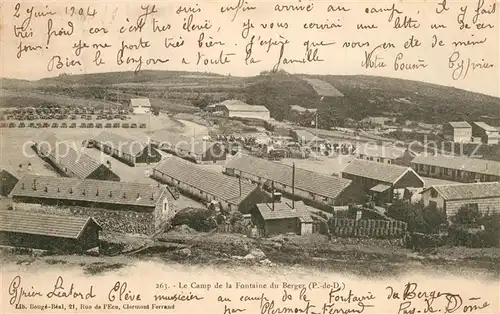 2 Juin 1904 Je suis enfin arrivé au camp, il y fait
très froid c'est très élevé, vous recevrai une lettre un de ces
jour. je me porte très bien. J'espère que vous en etes de même
Bien le bonjour a toute la famille
Votre Cousin Cyprien
263. - Le Camp de la Fontaine du Berger (P.-de-D.)
Lib. Bougé-Béal, 21, Rue de l'Eau, Clermont Ferrand
Cyprien Léotard Elève musicier au camp de la Fontaine du Berger
par Clermont-Ferrand Puy-de-Dôme